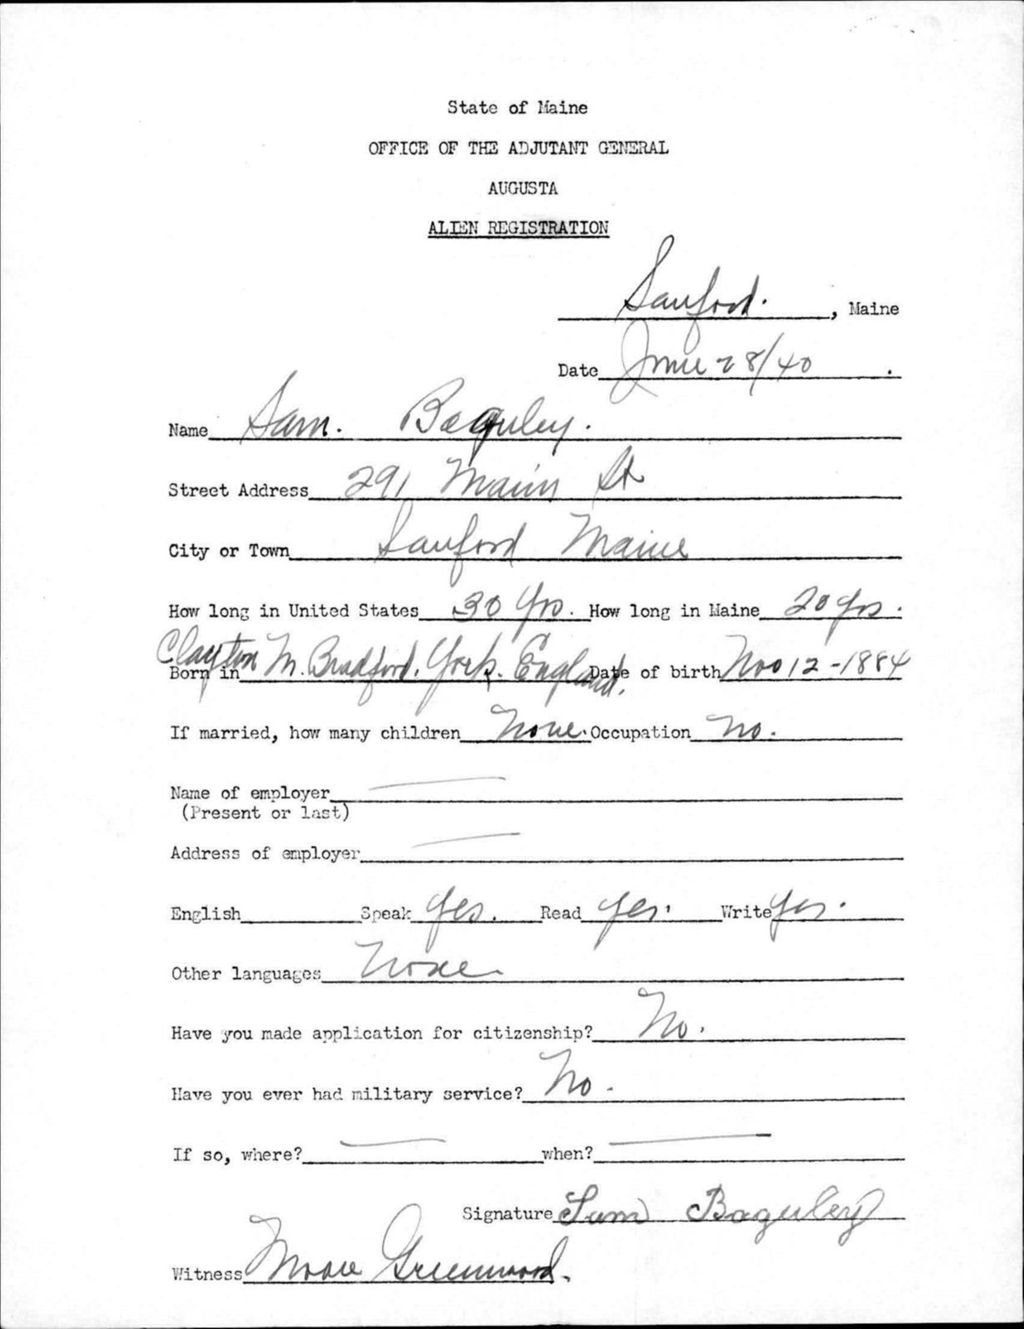 State of Maine
OFFICE OF THE ADJUTANT GENERAL
AUGUSTA
ALIEN REGISTRATION
Sanford. , Maine
Date June 28/40 .
Name Sam. Baguley.
Street Address 291 Main St
City or Town Sanford Maine
How long in United States 30 Yrs. How long in Maine 20 Yrs.
Born in Clayton N. Bradford. York. England. Date of birth Nov 12-1884
If married, how many children None. Occupation No.
Name of employer
(Present or last)
Address of employer
English Speak Yes. Read Yes. Write Yes.
Other languages None
Have you made application for citizenship? No.
Have you ever had military service? No.
If so, where? when?
Signature Sam Baguley
Witness Greenwood.